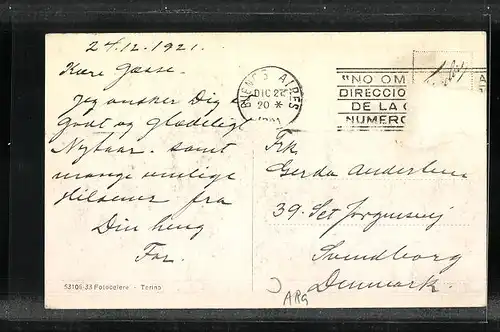 24.12.1921.
Kære Gasse.
Jeg ønsker Dig et
godt og glædeligt
Nytaar. samt
mange venlige
Hilsener fra
Din heng
Far.
53106-33 Fotocelere - Torino
BUENOS AIRES
DIC 24
20 *
1921
"NO OM
DIRECCIO
DE LA
NUMERO
Frk
Gerda Andersen
39. Sct Jørgensvej
Svendborg
Denmark.
ARG